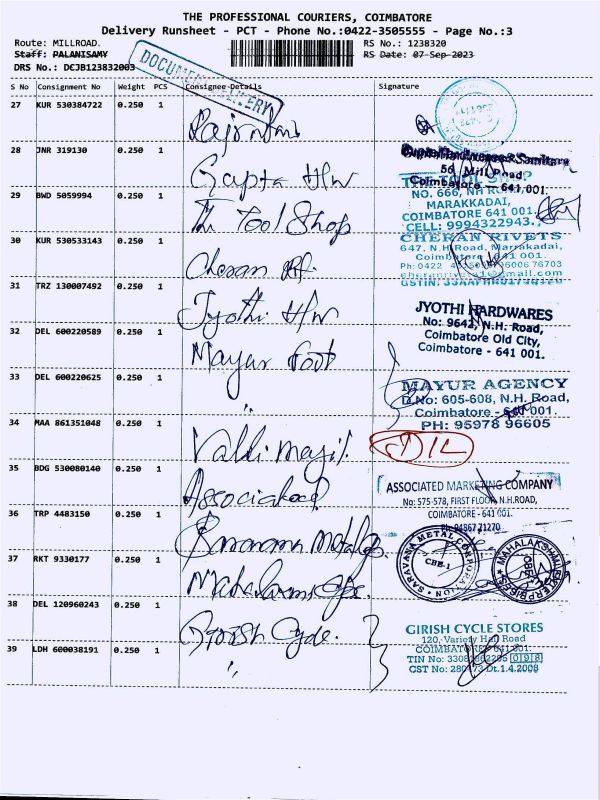 THE PROFESSIONAL COURIERS, COIMBATORE
Delivery Runsheet - PCT - Phone No.:0422-3505555 - Page No.:3
Route: MILLROAD.
RS No.: 1238320
Staff: PALANISAMY
RS Date: 07-Sep-2023
DRS No.: DCJB123832003
S No Consignment No Weight PCS Consignee Details Signature
27 KUR 530384722 0.250 1
28 JNR 319130 0.250 1 Gupta H/w
56, Mill Road,
Coimbatore - 641 001.
29 BWD 5059994 0.250 1 The Tool Shop
THE TOOL SHOP
NO. 666, NH ROAD,
MARAKKADAI,
COIMBATORE 641 001.
CELL: 9994322943.
30 KUR 530533143 0.250 1 Cheran
CHERAN RIVETS
647, N.H.Road, Marrakadai,
Coimbatore 641 001.
31 TRZ 130007492 0.250 1 Jyothi H/w
JYOTHI HARDWARES
No: 9642, N.H. Road,
Coimbatore Old City,
Coimbatore - 641 001.
32 DEL 600220589 0.250 1 Mayur
33 DEL 600220625 0.250 1 "
MAYUR AGENCY
D.No: 605-608, N.H. Road,
Coimbatore - 641 001.
PH: 95978 96605
34 MAA 861351048 0.250 1 Valli
35 BDG 530080140 0.250 1 Associated
ASSOCIATED MARKETING COMPANY
No: 575-578, FIRST FLOOR, N.H.ROAD,
COIMBATORE - 641 001.
Ph: 9486721270
36 TRP 4483150 0.250 1 Saravana Metal
SARAVANA METAL CORPORATION
CBE-1
37 RKT 9330177 0.250 1 Mahalaxmi
MAHALAKSHMI ENTERPRISES
38 DEL 120960243 0.250 1 Girish Cycle.
39 LDH 600038191 0.250 1 "
GIRISH CYCLE STORES
120, Variety Hall Road
COIMBATORE 641 001.